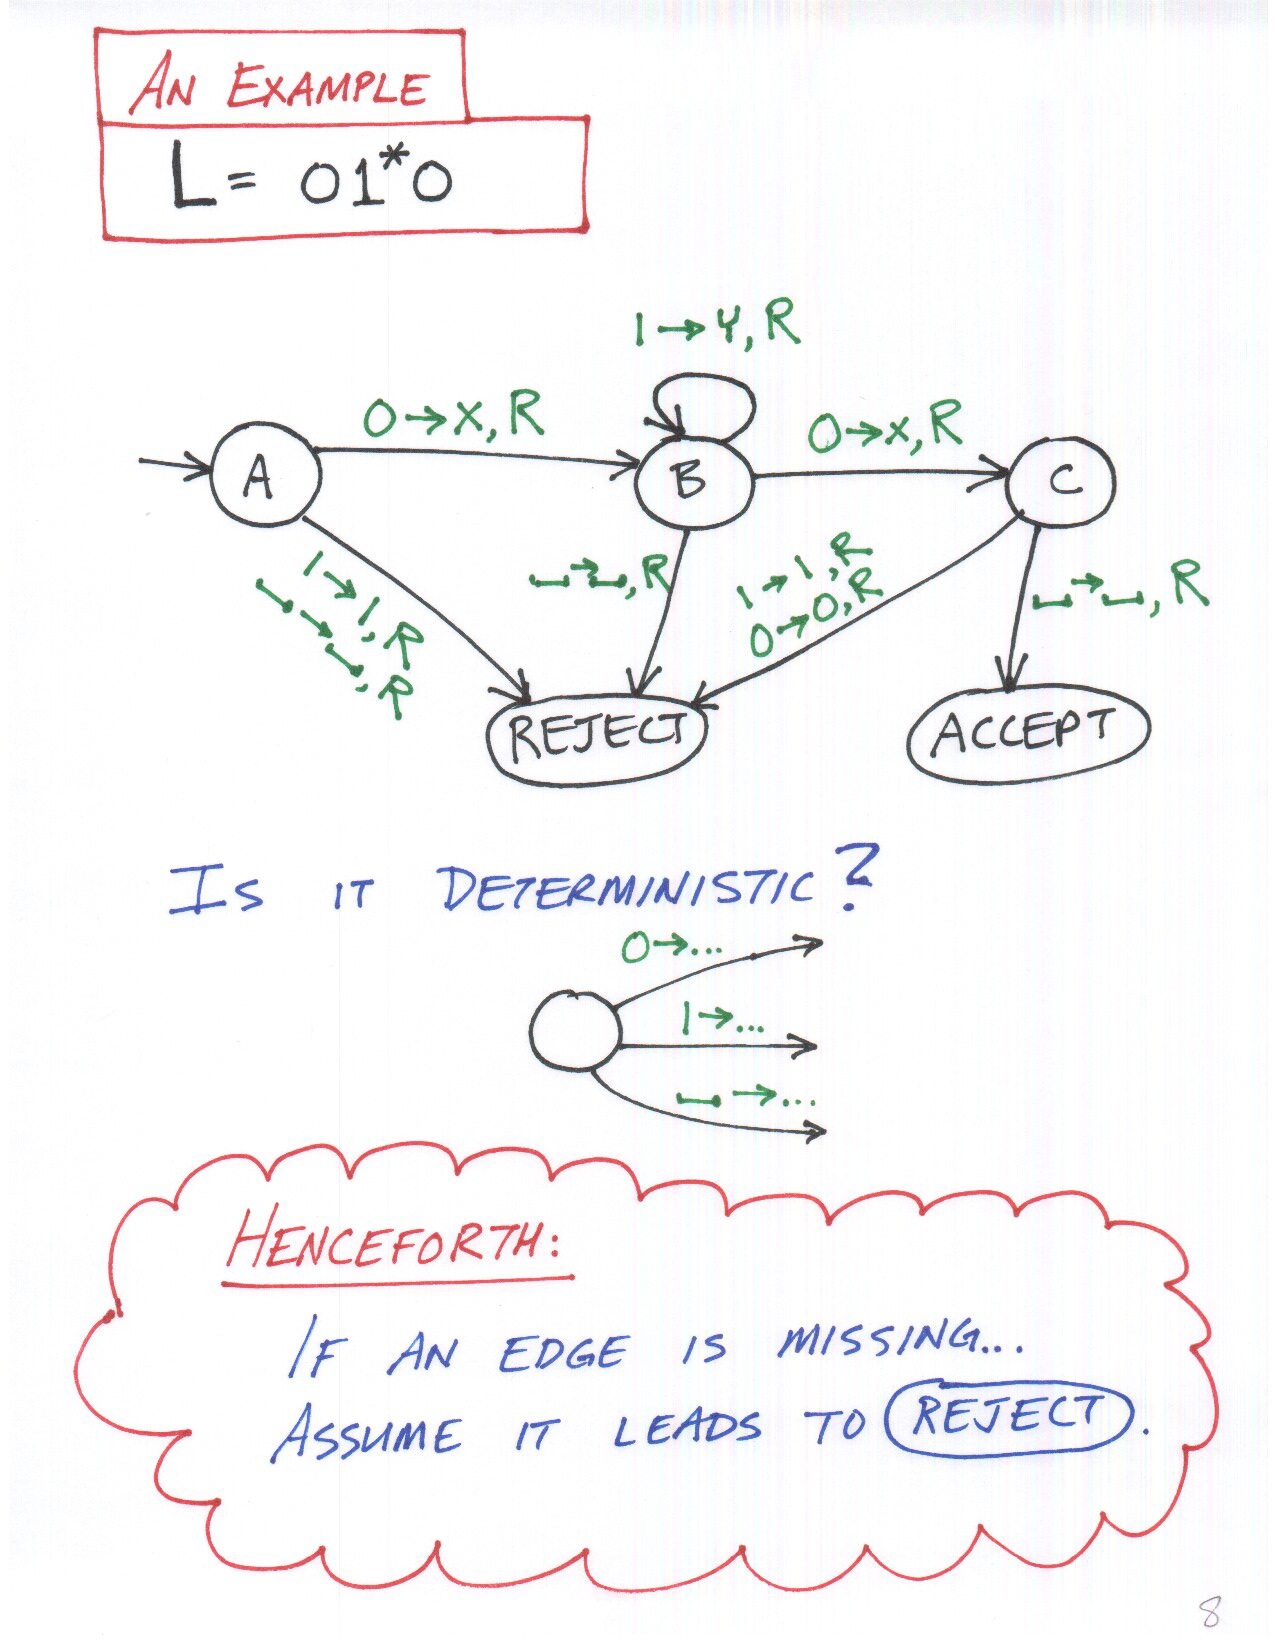 AN EXAMPLE
L = 01*0
1→Y, R
0→X, R
0→X, R
A
B
C
1→1, R
␣→␣, R
␣→␣, R
1→1, R
0→0, R
␣→␣, R
REJECT
ACCEPT
IS IT DETERMINISTIC?
0→...
1→...
␣→...
HENCEFORTH:
IF AN EDGE IS MISSING...
ASSUME IT LEADS TO REJECT.
8